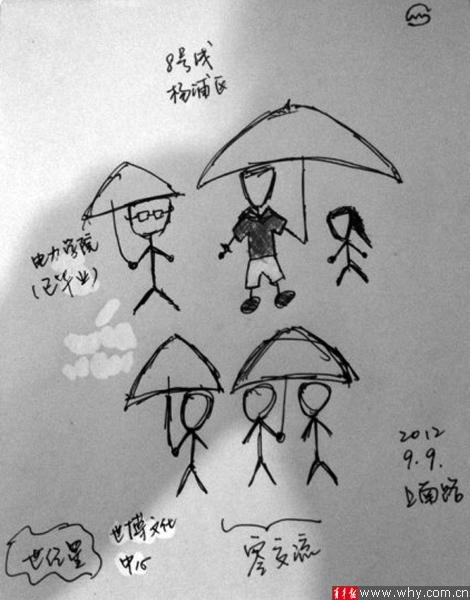 8号线
杨浦区
电力学院
(已毕业)
2012
9.9.
上南路
世博文化
中心
零交流
青年报 www.why.com.cn